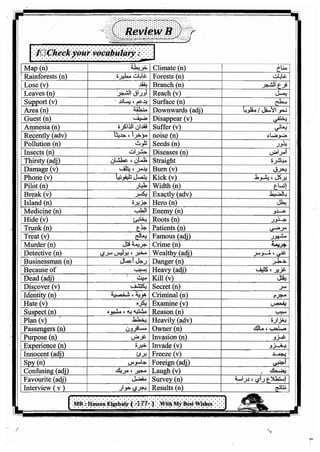 Review B
Check your vocabulary :
Map (n) خريطة Climate (n) مناخ
Rainforests (n) غابات مطيرة Forests (n) غابات
Lose (v) يفقد Branch (n) فرع الشجر
Leaves (n) أوراق الشجر Reach (v) يصل
Support (v) يدعم ، يساند Surface (n) سطح
Area (n) منطقة Downwards (adj) نحو الأسفل / مقلوباً
Guest (n) ضيف Disappear (v) يختفي
Amnesia (n) فقدان الذاكرة Suffer (v) يعاني
Recently (adv) مؤخراً ، حديثاً noise (n) ضوضاء
Pollution (n) تلوث Seeds (n) بذور
Insects (n) حشرات Diseases (n) أمراض
Thirsty (adj) ظمآن ، عطشان Straight مباشرة
Damage (v) يدمر ، يتلف Burn (v) يحرق
Phone (v) يتصل تليفونياً Kick (v) يركل ، يشوط
Pilot (n) طيار Width (n) إتساع
Break (v) يكسر Exactly (adv) بالضبط
Island (n) جزيرة Hero (n) بطل
Medicine (n) الطب Enemy (n) عدو
Hide (v) يختبئ Roots (n) جذور
Trunk (n) جذع Patients (n) مرضي
Treat (v) يعالج Famous (adj) مشهور
Murder (n) جريمة قتل Crime (n) جريمة
Detective (n) مخبر ، بوليس سري Wealthy (adj) غني ، موسر
Businessman (n) رجل أعمال Danger (n) خطر
Because of بسبب Heavy (adj) كثيف ، غزير
Dead (adj) ميت Kill (v) يقتل
Discover (v) يكتشف Secret (n) سر
Identity (n) هوية ، شخصية Criminal (n) مجرم
Hate (v) يكره Examine (v) يفحص
Suspect (n) مشتبه به ، مشبوه Reason (n) سبب
Plan (v) يخطط Heavily (adv) بغزارة
Passengers (n) مسافرون Owner (n) صاحب ، مالك
Purpose (n) غرض Invasion (n) غزو
Experience (n) خبرة Invade (v) يغزو
Innocent (adj) برئ Freeze (v) يجمد
Spy (n) جاسوس Foreign (adj) أجنبي
Confusing (adj) محير ، مربك Laugh (v) يضحك
Favourite (adj) مفضل Survey (n) إستطلاع رأي ، دراسة
Interview ( v ) يجري حوار Results (n) نتائج
MR : Hassan Elgebaly ( -177- ) With My Best Wishes